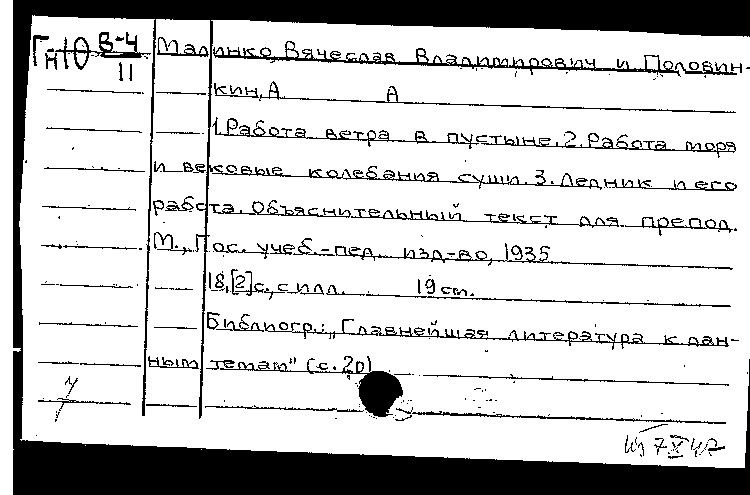 Гн10 В-4 Малинко, Вячеслав Владимирович и Половин-
11
кин, А А
1. Работа ветра в пустыне. 2. Работа моря
и вековые колебания суши. 3. Ледник и его
работа. Объяснительный текст для препод.
М., Гос. учеб.-пед. изд-во, 1935
18,[2]с., с илл. 19 см.
Библиогр.: „Главнейшая литература к дан-
ным темам" (с. 20)
7 X 47